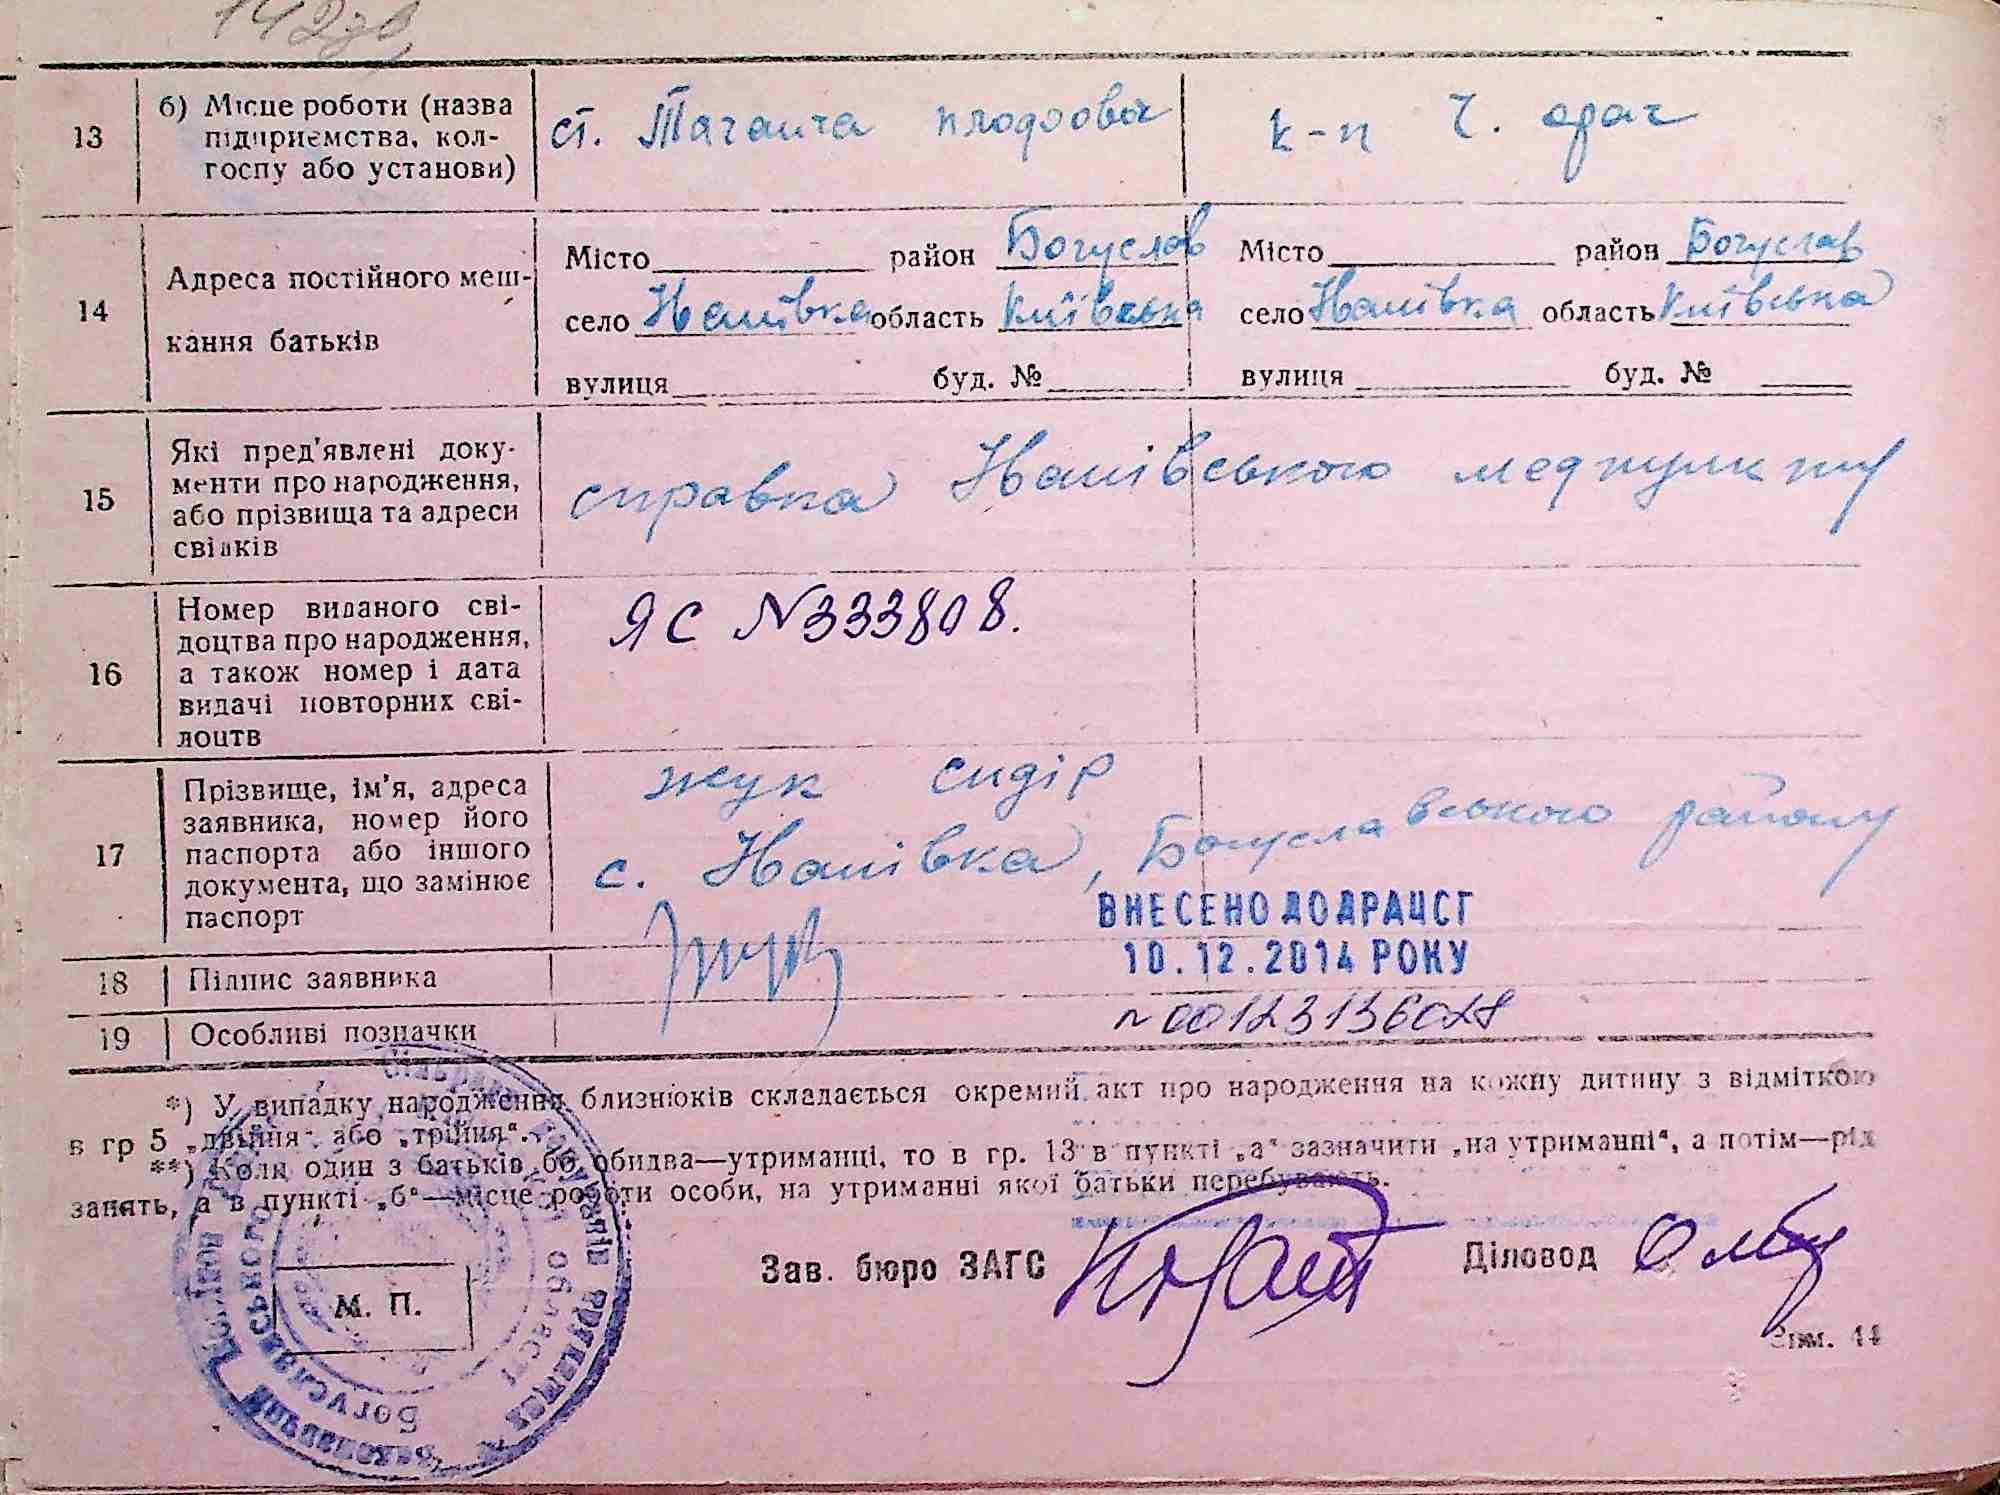 142зв
13 б) Місце роботи (назва підприємства, колгоспу або установи) ст. Таганча плодоовоч к-п Ч. орач
14 Адреса постійного меш-
Місто район Богуслав Місто район Богуслав
село Нашівка область Київська село Нашівка область Київська
кання батьків
вулиця буд. № вулиця буд. №
15 Які пред'явлені доку-
менти про народження,
або прізвища та адреси
свідків
справка Нашівського медпункту
16 Номер виданого сві-
доцтва про народження,
а також номер і дата
видачі повторних сві-
доцтв
ЯС N333808.
17 Прізвище, ім'я, адреса
заявника, номер його
паспорта або іншого
документа, що замінює
паспорт
жук Сидір
с. Нашівка, Богуславського району
ВНЕСЕНО ДО ДРАЦСГ
10.12.2014 РОКУ
18 Підпис заявника
19 Особливі позначки
N00123136028
*) У випадку народження близнюків складається окремий акт про народження на кожну дитину з відміткою
в гр 5 „двійня“ або „трійня“.
**) Коли один з батьків бо обидва—утриманці, то в гр. 13 в пункті „а“ зазначити „на утриманні“, а потім—рід
занять, а в пункті „б“—місце роботи особи, на утриманні якої батьки перебувають.
Зав. бюро ЗАГС Діловод
М. П.
Богуславського
області